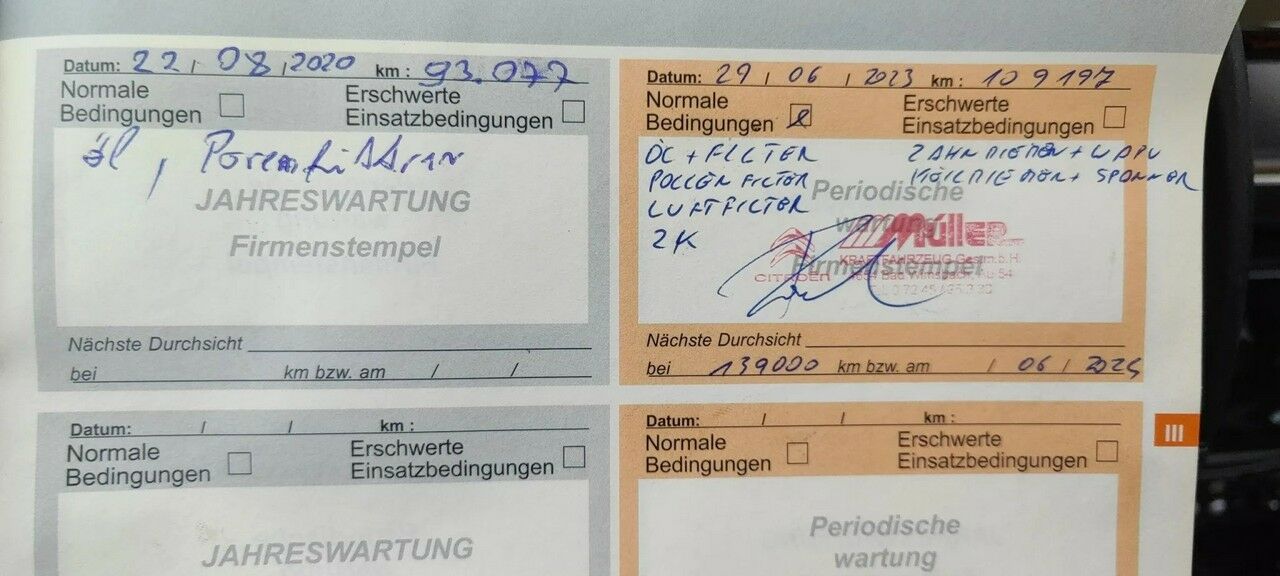 Datum: 22 / 08 / 2020 km : 93.077
Normale Bedingungen
Erschwerte Einsatzbedingungen
öl,
JAHRESWARTUNG
Firmenstempel
Nächste Durchsicht
bei km bzw. am / /
Datum: 29 / 06 / 2023 km : 109197
Normale Bedingungen
Erschwerte Einsatzbedingungen
ÖL + FILTER ZAHNRIEMEN + WAPU
POLLENFILTER KEILRIEMEN + SPANNER
LUFTFILTER
2K
Periodische
wartung
Firmenstempel
Müller
CITROËN
KRAFTFAHRZEUG Ges.m.b.H.
Nächste Durchsicht
bei 139000 km bzw. am / 06 /
Datum: / / km :
Normale Bedingungen
Erschwerte Einsatzbedingungen
JAHRESWARTUNG
Datum: / / km :
Normale Bedingungen
Erschwerte Einsatzbedingungen
Periodische
wartung
III